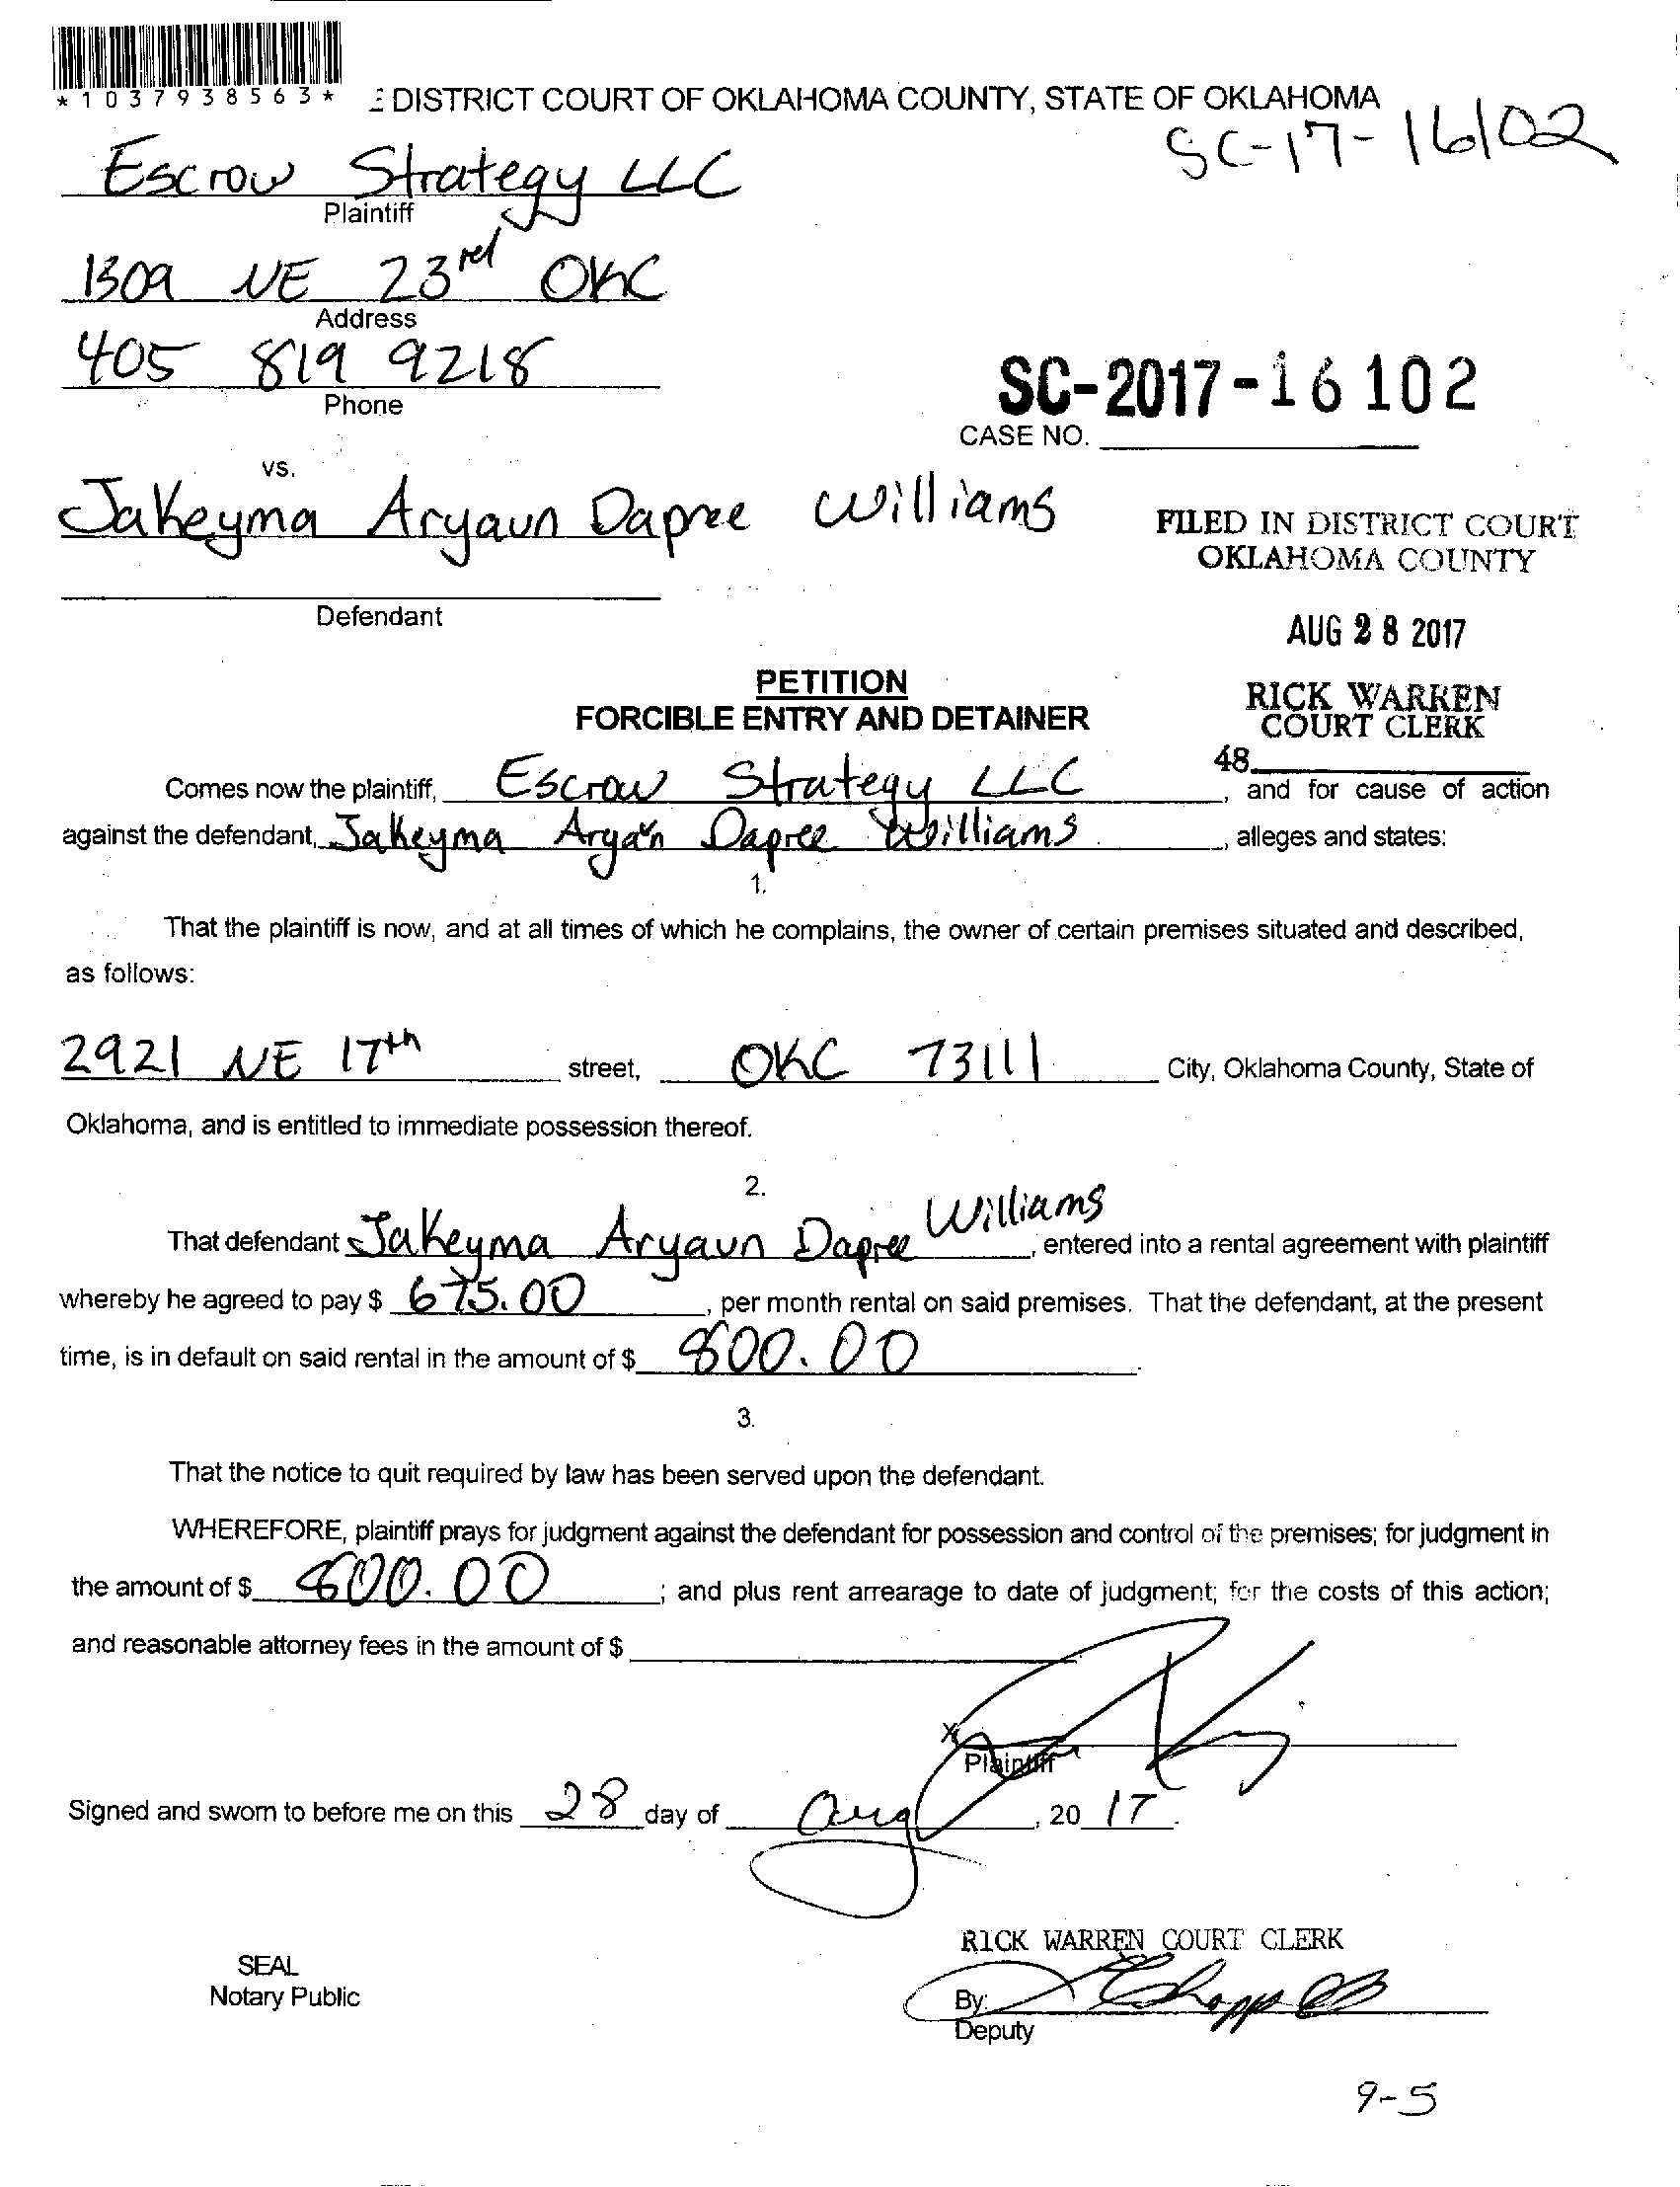 *1037938563*
E DISTRICT COURT OF OKLAHOMA COUNTY, STATE OF OKLAHOMA
SC-17-16102
Escrow Strategy LLC
Plaintiff
1309 NE 23rd OKC
Address
405 819 9218
Phone
SC-2017-16102
CASE NO.
vs.
Jakeyma Aryaun Dapree Williams
FILED IN DISTRICT COURT
OKLAHOMA COUNTY
Defendant
AUG 28 2017
PETITION
FORCIBLE ENTRY AND DETAINER
RICK WARREN
COURT CLERK
48
Comes now the plaintiff, Escrow Strategy LLC, and for cause of action
against the defendant, Jakeyma Aryaun Dapree Williams, alleges and states:
1.
That the plaintiff is now, and at all times of which he complains, the owner of certain premises situated and described,
as follows:
2921 NE 17th street, OKC 73111 City, Oklahoma County, State of
Oklahoma, and is entitled to immediate possession thereof.
2.
That defendant Jakeyma Aryaun Dapree Williams, entered into a rental agreement with plaintiff
whereby he agreed to pay $ 675.00, per month rental on said premises. That the defendant, at the present
time, is in default on said rental in the amount of $ 800.00.
3.
That the notice to quit required by law has been served upon the defendant.
WHEREFORE, plaintiff prays for judgment against the defendant for possession and control of the premises; for judgment in
the amount of $ 800.00; and plus rent arrearage to date of judgment; for the costs of this action;
and reasonable attorney fees in the amount of $
x
Plaintiff
Signed and sworn to before me on this 28 day of Aug, 20 17.
RICK WARREN COURT CLERK
SEAL
Notary Public
By:
Deputy
9-5